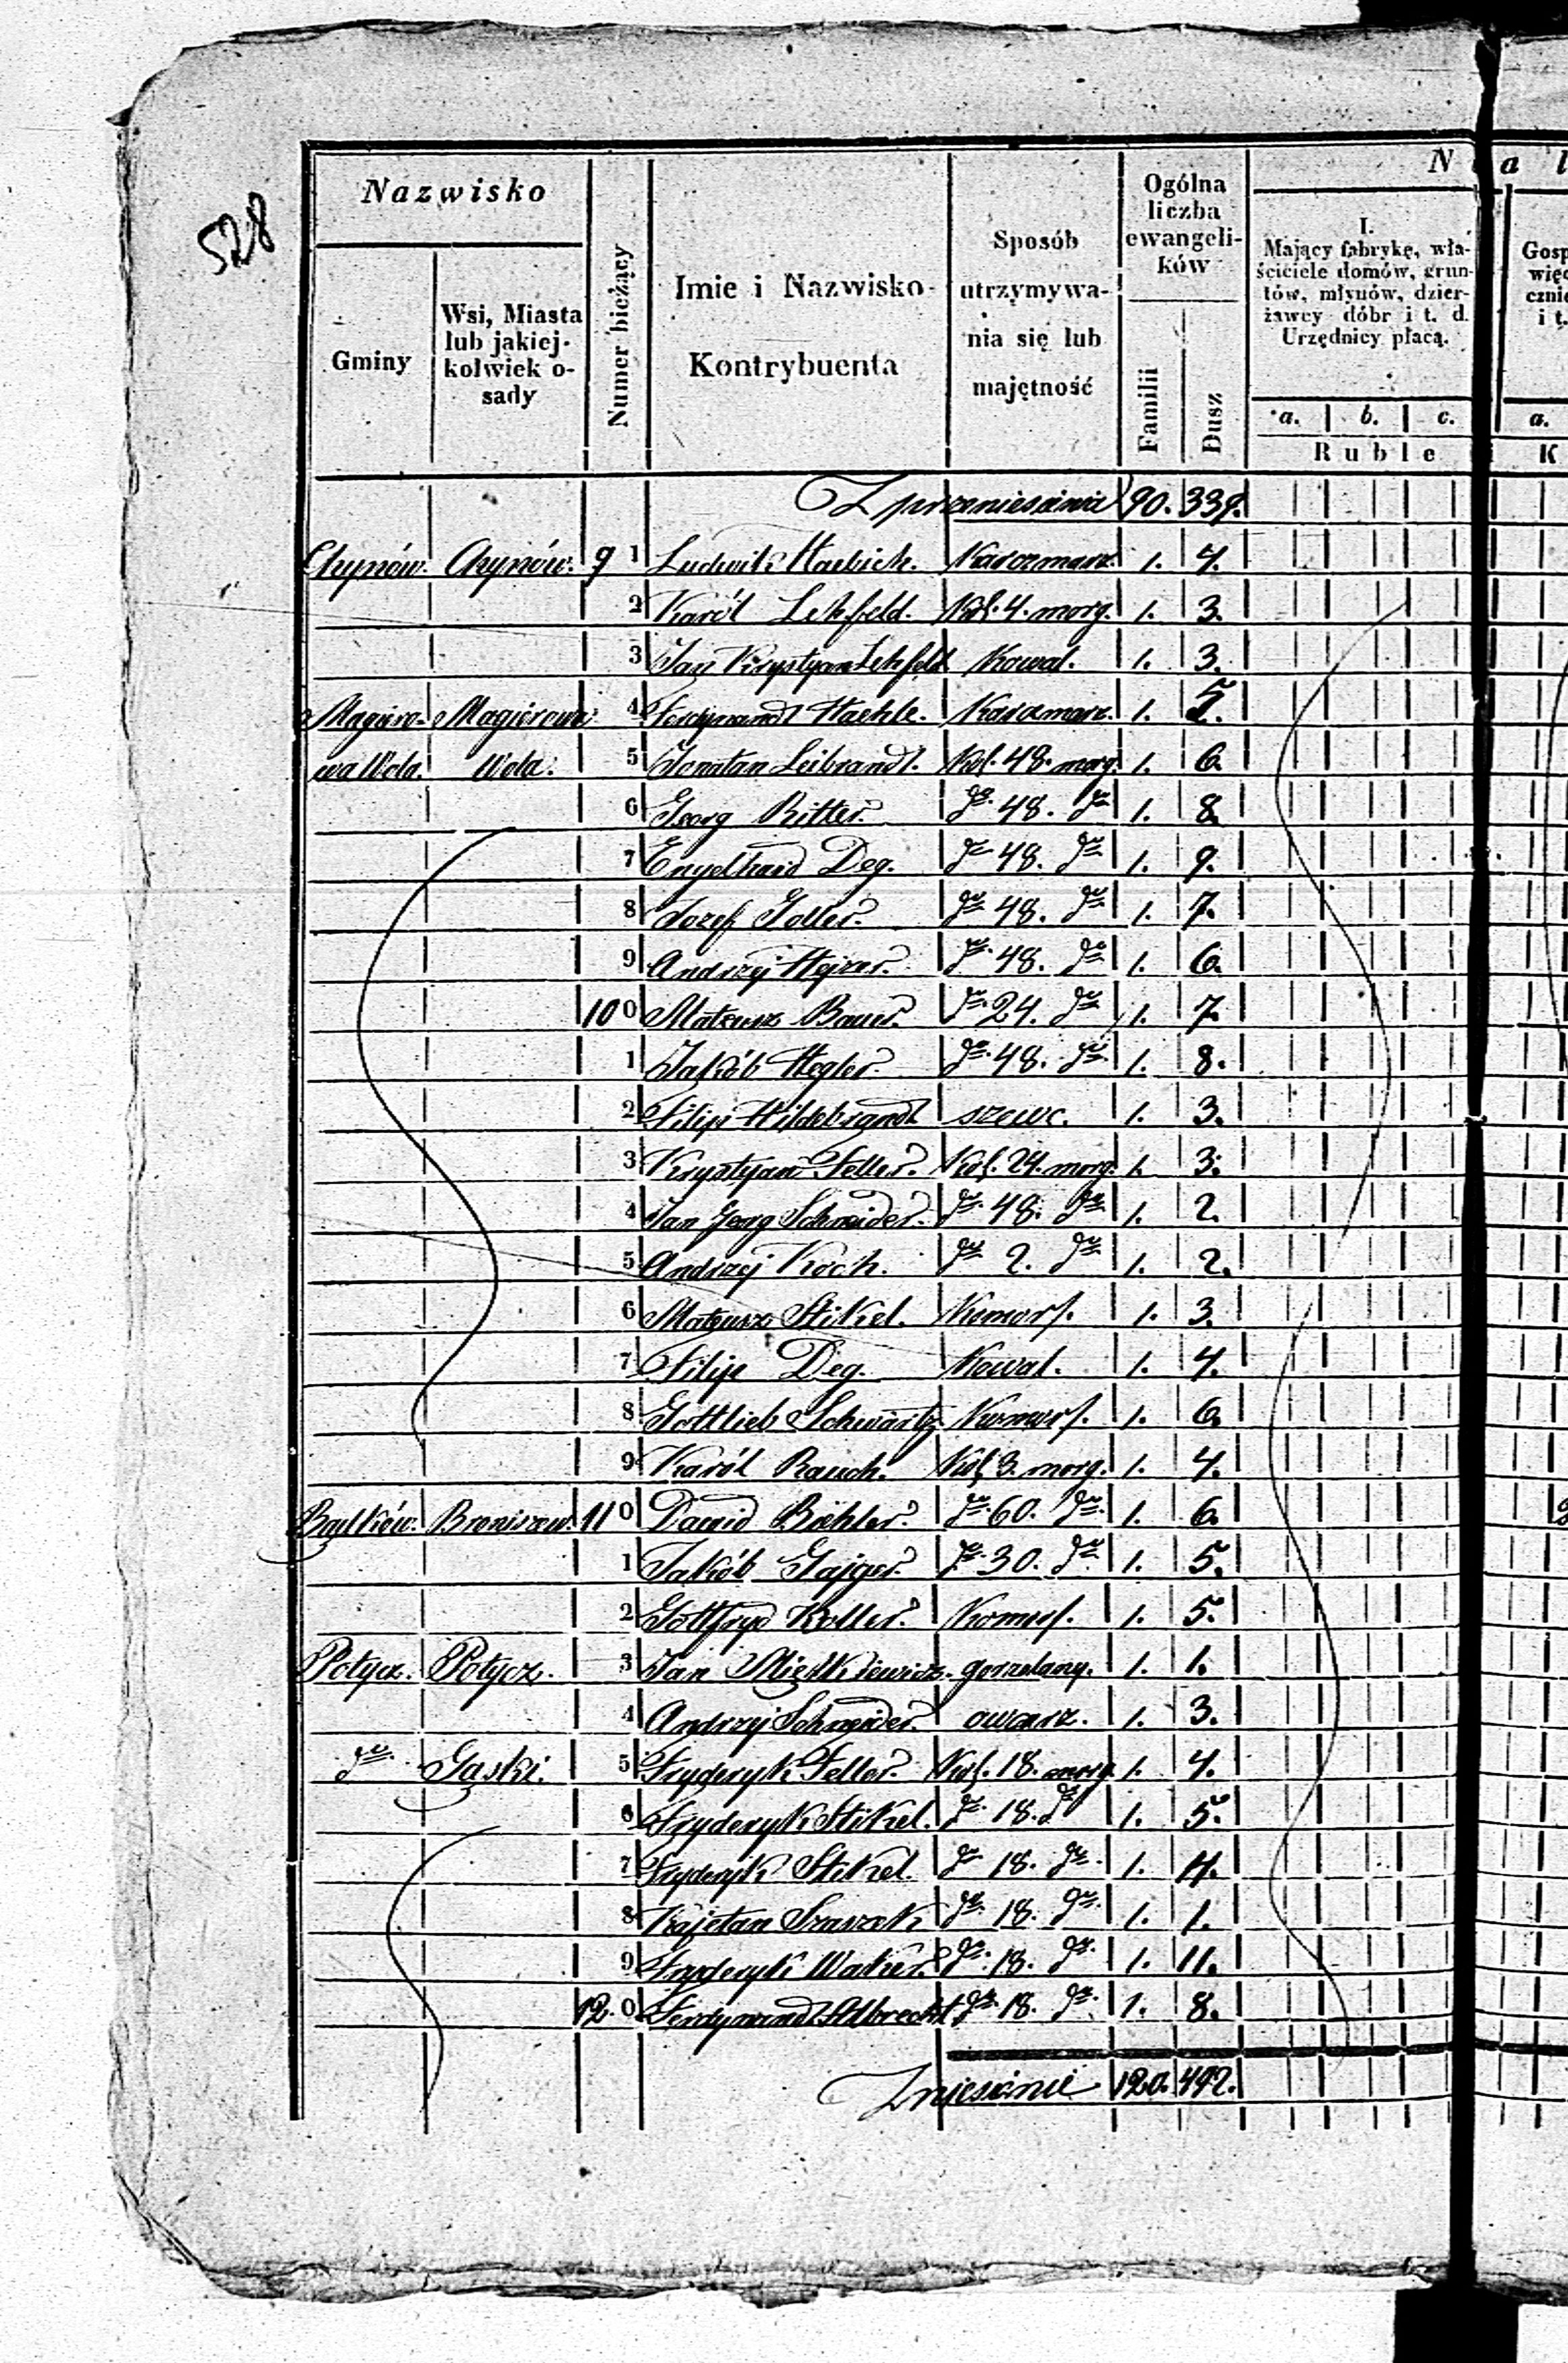 528
Nazwisko
Gminy
Wsi, Miasta lub jakiej-kolwiek o-sady
Numer bieżący
Imie i Nazwisko Kontrybuenta
Sposób utrzymywa-nia się lub majętność
Ogólna liczba ewangeli-ków
Familii
Dusz
N a l
I.
Mający fabrykę, wła-ściciele domów, grun-tów, młynów, dzier-żawcy dóbr i t. d. Urzędnicy płacą.
a. b. c.
Ruble
Gosp
więc
czni
i t.
a.
K
Z przeniesienia 90. 339.
Chynów. Chynów. 9 1 Ludwik Haebich. Karczmarz. 1. 4.
2 Karól Lehfeld. Kol. 4. morg. 1. 3.
3 Jan Krystyan Lehfeld Kowal. 1. 3.
Magiero- Magierowa 4 Ferdynandt Haehle. Karczmarz. 1. 5.
wa Wola. Wola. 5 Jonatan Leibrandt. Kol. 48. morg. 1. 6.
6 Georg Ritter. do 48. do 1. 8.
7 Engelhard Deg. do 48. do 1. 9.
8 Jozef Goller. do 48. do 1. 7.
9 Andrzej Hejzer. do 48. do 1. 6.
10 0 Mateusz Bauer. do 24. do 1. 7.
1 Jakób Hegler. do 48. do 1. 8.
2 Filip Hildebrandt szewc. 1. 3.
3 Krystyan Feller. Kol. 24. morg. 1. 3.
4 Jan Georg Schneider. do 48. do 1. 2.
5 Andrzej Koch. do 2. do 1. 2.
6 Mateusz Stikel. Komor. 1. 3.
7 Filip Deg. Kowal. 1. 4.
8 Gottlieb Schwartz Komor. 1. 6.
9 Karól Rauch. Kol. 3. morg. 1. 4.
Bądków. Broniszew. 11 0 Dawid Böhler. do 60. do 1. 6.
1 Jakób Gajger. do 30. do 1. 5.
2 Gottfryd Koller. Komor. 1. 5.
Potycz. Potycz. 3 Jan gorzelany. 1. 1.
4 Andrzej Schneider. owczarz. 1. 3.
do Gąski. 5 Fryderyk Feller. Kol. 18. morg. 1. 4.
6 Fryderyk Stikel. do 18. do 1. 5.
7 Fryderyk Stikel. do 18. do 1. 4.
8 Kajetan do 18. do 1. 1.
9 Fryderyk Walter. do 18. do 1. 11.
12. 0 Ferdynandt Albrecht do 18. do 1. 8.
Zniesienie 120. 492.